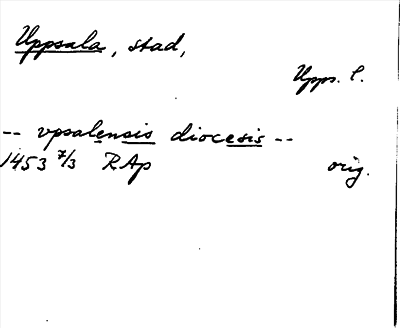 Uppsala, stad,
Upps. l.
-- vpsalensis diocesis --
1453 7/3 RAp orig.